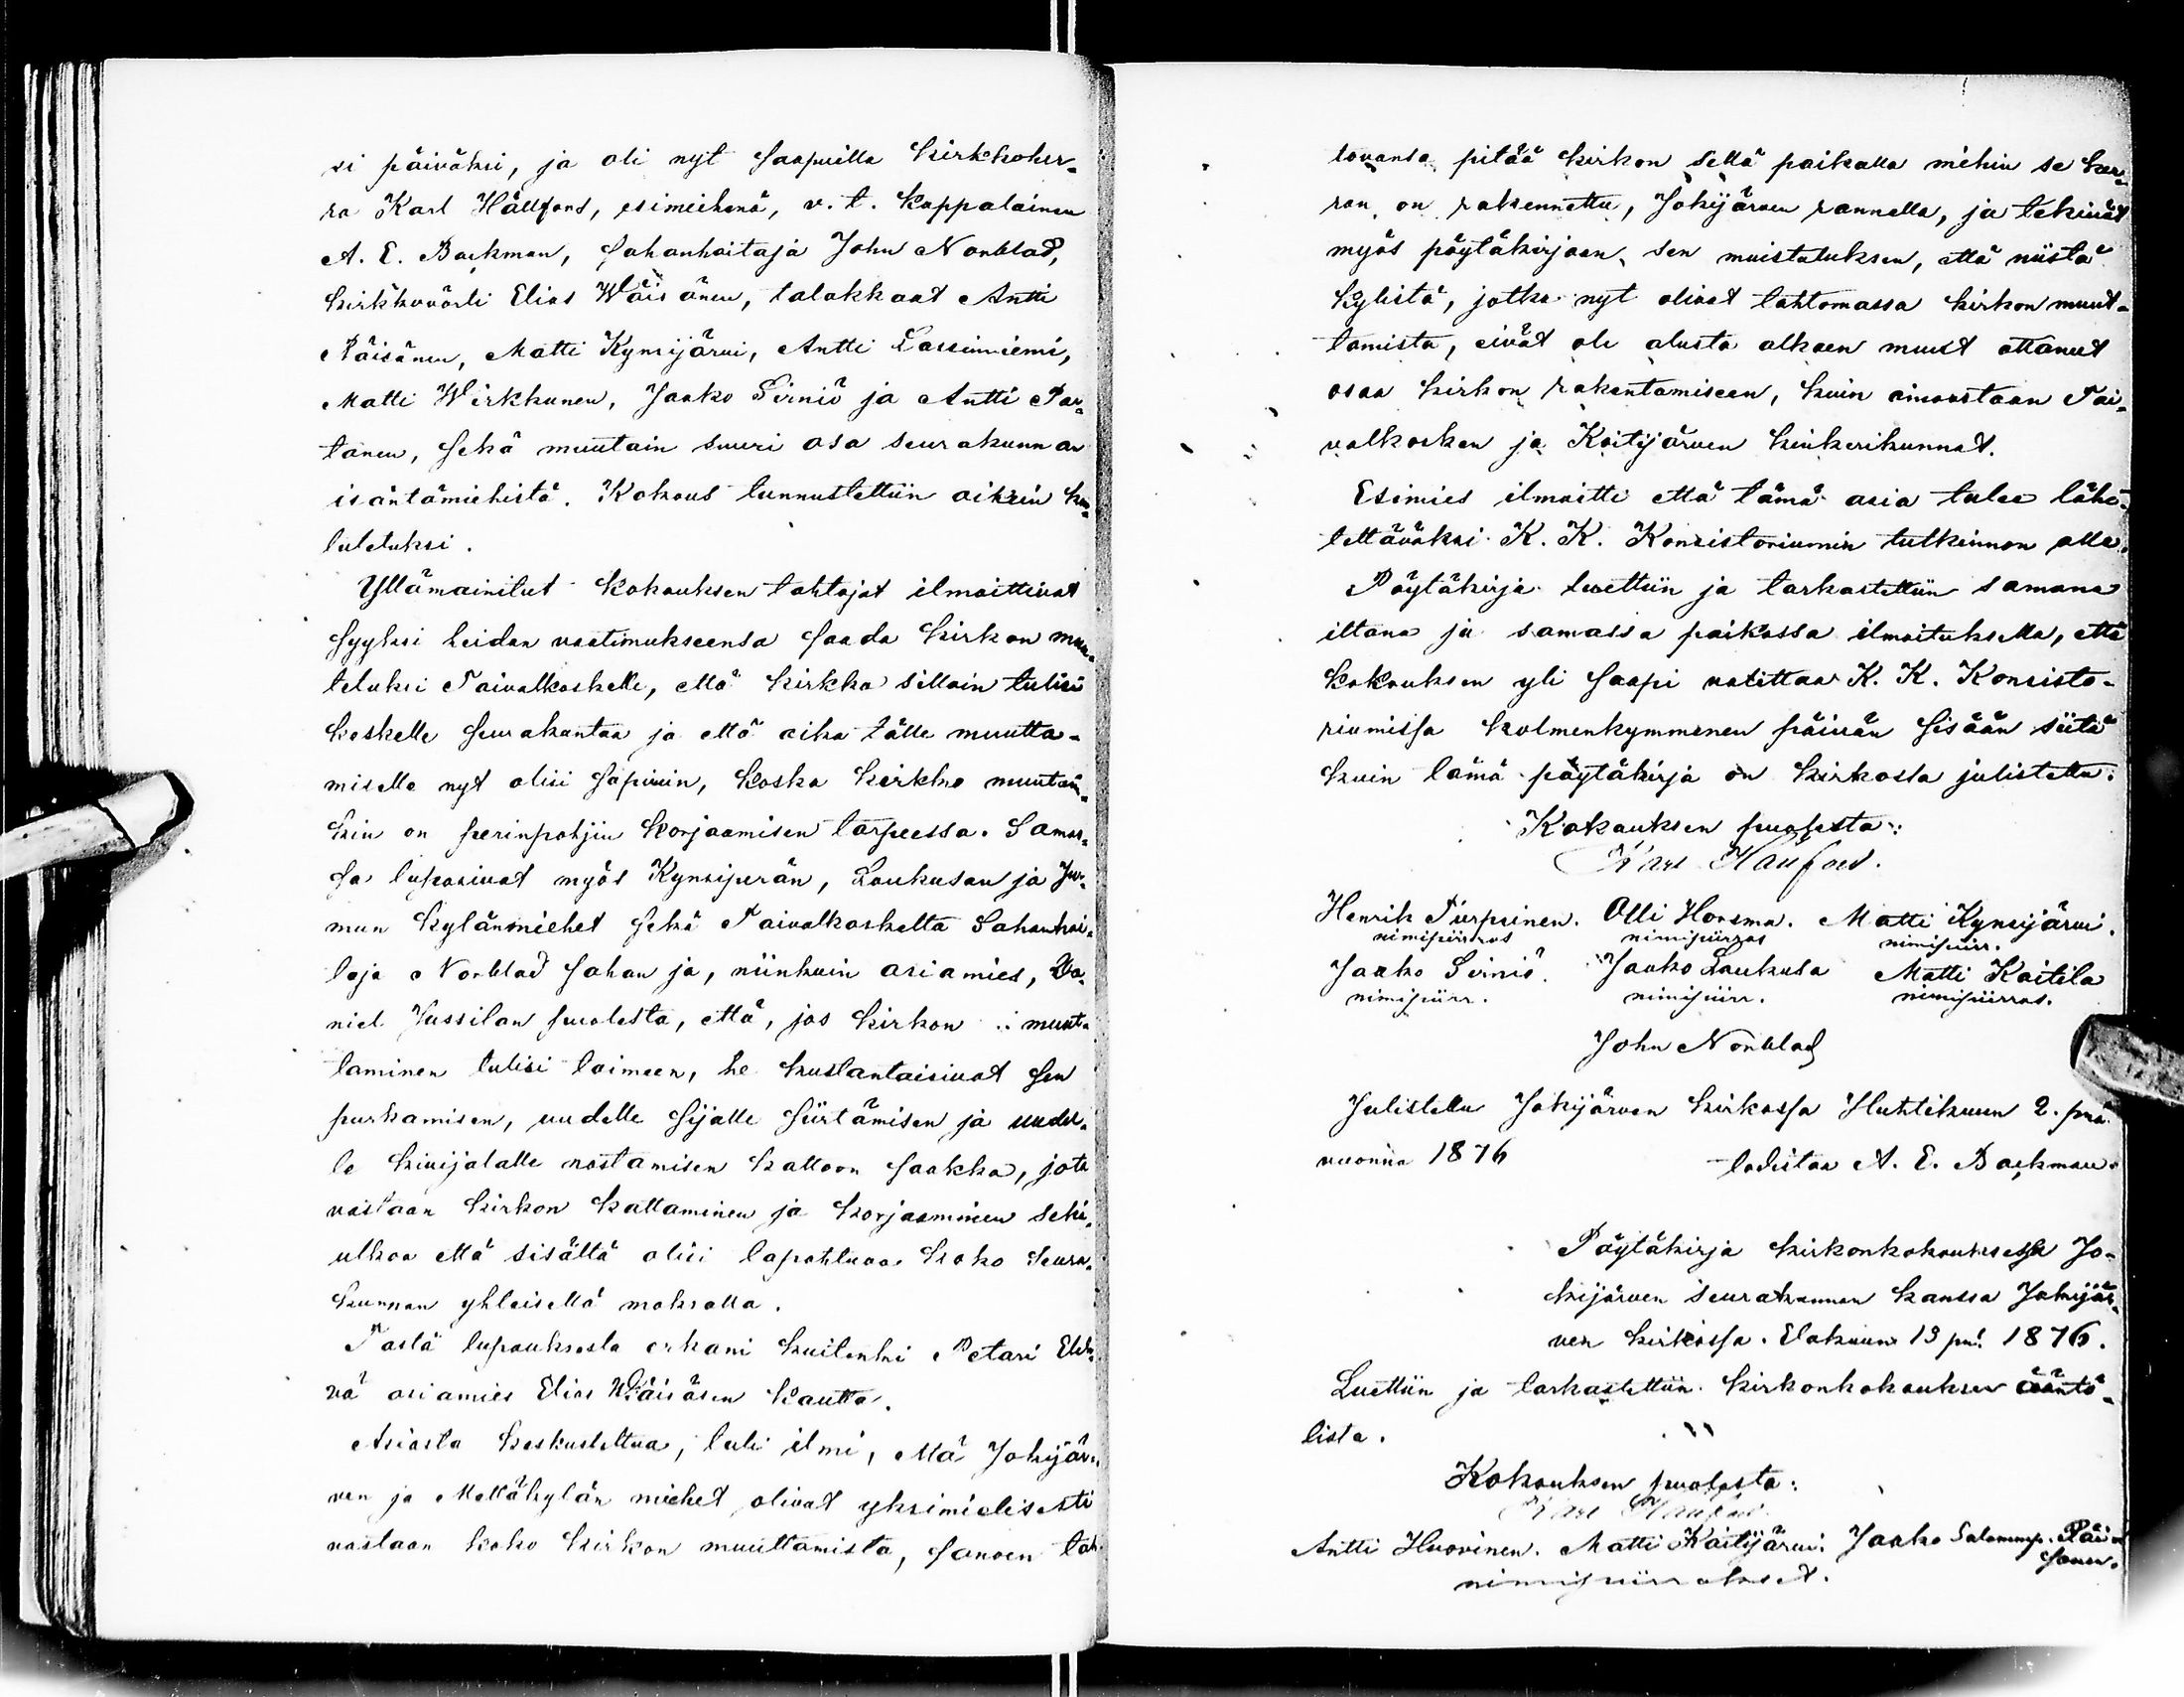 si päiväksi, ja oli nyt saapuilla kirkkoher-
ra Karl Hällfors, esimiehenä, v. t. kappalainen
A. E. Backman, sahanhoitaja John Nonblad,
kirkkovärti Elias Wäisänen, talokkaat Antti
Räisänen, Matti Kynsijärvi, Antti Lassinniemi,
Matti Wirkkunen, Jaako Sirniö ja Antti Par-
tanen, sekä muutain suuri osa seurakunnan
isäntämiehistä. Kokous tunnustettiin oikein ku-
lutetuksi.
Yllämainitut kokouksen tahtojat ilmoittivat
syyksi heidän vaatimukseensa saada kirkon muu-
tetuksi Taivalkoskelle, että kirkko silloin tulisi
keskelle seurakuntaa ja että aika tälle muutta-
miselle nyt olisi sopivin, koska kirkko muutain-
kin on perinpohjin korjaamisen tarpeessa. Samas-
sa lupasivat myös Kynsiperän, Loukusan ja Jur-
mun kylänmiehet sekä Taivalkoskelta Sahanhoi-
taja Nonblad sahan ja, niinkuin asiamies, Da-
niel Jussilan puolesta, että, jos kirkon muut-
taminen tulisi toimeen, he kustantaisivat sen
purkamisen, uudelle sijalle siirtämisen ja uudel-
le kivijalalle nostamisen kattoon saakka, jota
vastaan kirkon kattaminen ja korjaaminen sekä
ulkoa että sisältä olisi tapahtuva koko seura-
kunnan yhteisellä maksolla.
Tästä lupauksesta erkani kuitenki Petari
vä asiamies Elias Wäisäsen kautta.
Asiasta keskusteltua, tuli ilmi, että Jokijär-
ven ja Metsäkylän miehet olivat yksimielisesti
vastaan koko kirkon muuttamista, sanoen tah-
tovansa pitää kirkon sellä paikalla mihin se ker-
ran on rakennettu, Jokijärven rannalla, ja tekivät
myös pöytäkirjaan sen muistutuksen, että niistä
kylistä, jotka nyt olivat tahtomassa kirkon muut-
tamista, eivät ole alusta alkaen muut ottanut
osaa kirkon rakentamiseen, kuin ainoastaan Tai-
valkosken ja Koitijärven kinkerikunnat.
Esimies ilmoitti että tämä asia tulee lähe-
tettäväksi K. K. Konsistoriumin tutkinnon alle.
Pöytäkirja luettiin ja tarkastettiin samana
iltana ja samassa paikassa ilmoituksella, että
kokouksen yli saapi valittaa K. K. Konsisto-
riumissa kolmenkymmenen päivän sisään siitä
kuin tämä pöytäkirja on kirkossa julistettu.
Kokouksen puolesta:
Karl Hällfors.
Henrik Turpeinen. Olli Horsma. Matti Kynsijärvi.
nimipiirros nimipiirros nimipiirr.
Jaako Sirniö. Jaako Loukusa Matti Koitila
nimipiirr. nimipiirr. nimipiirros.
John Nonblad
Julistettu Jokijärven kirkossa Huhtikuun 2. pnä
vuonna 1876 todistaa A. E. Backman.
Pöytäkirja kirkonkokouksessa Jo-
kijärven seurakunnan kanssa Jokijär-
ven kirkossa. Elokuun 13 pnä 1876.
Luettiin ja tarkastettiin kirkonkokouksen ääntö-
lista.
Kokouksen puolesta:
Karl Hällfors.
Antti Huovinen. Matti Koitijärvi. Jaako Salomonp. Räi-
sänen.
nimipiirrokset.